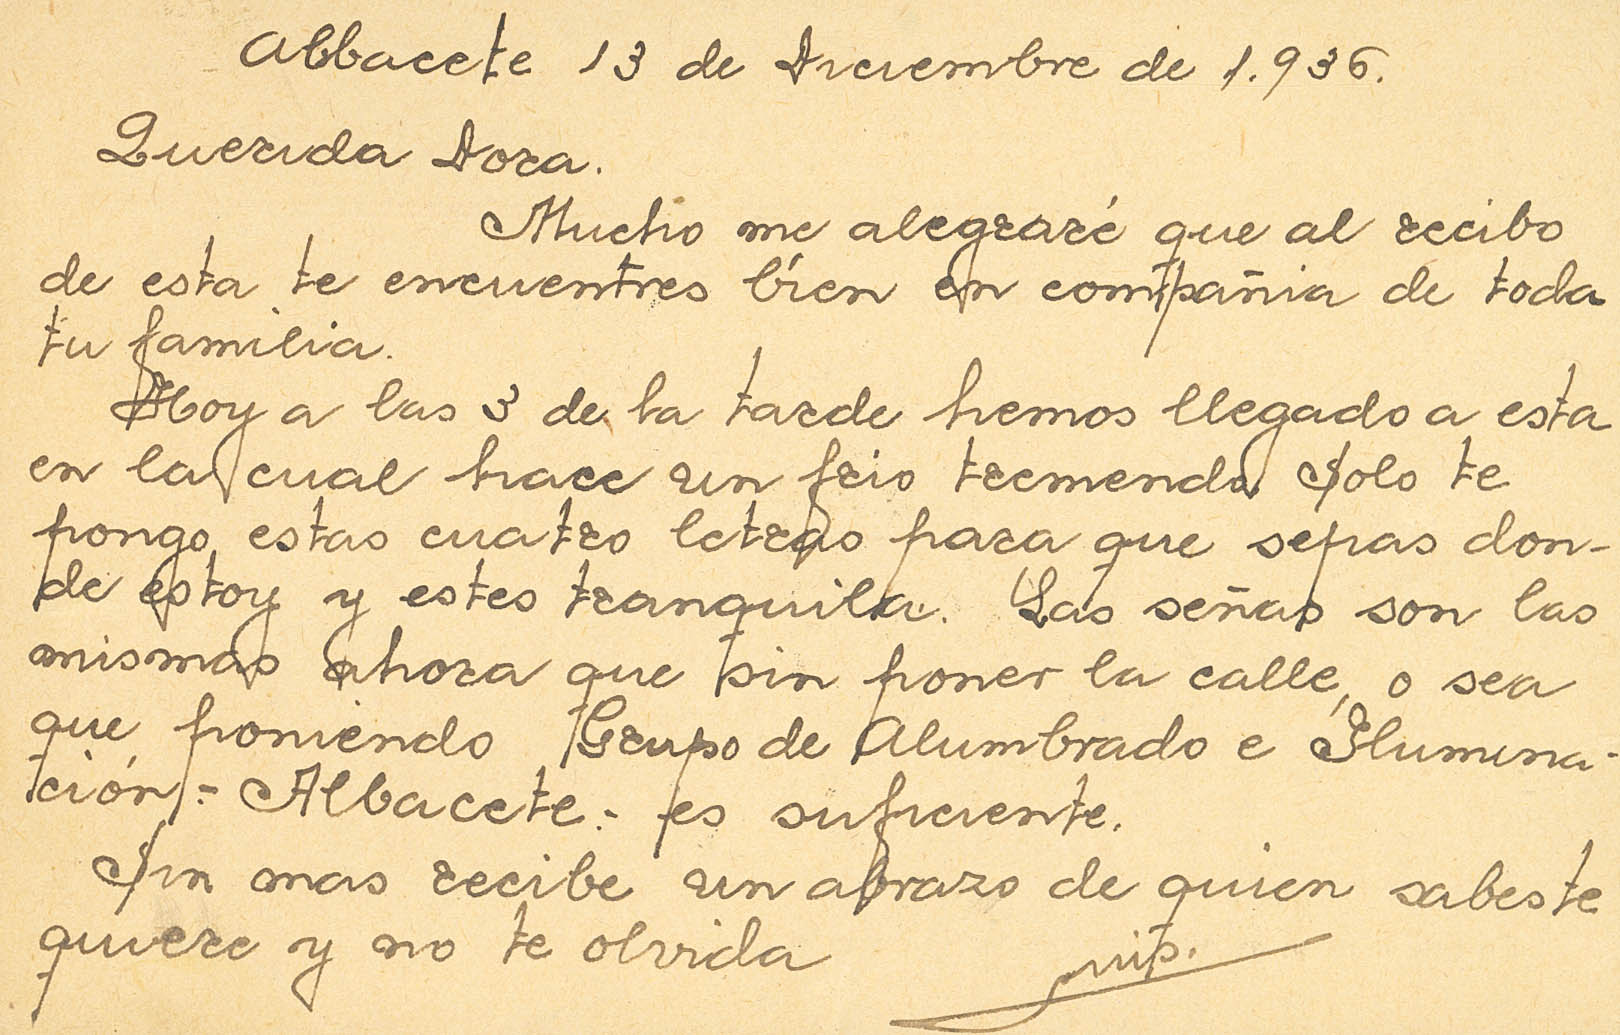 Abbacete 13 de Diciembre de 1.936.
Querida Dora.
Mucho me alegraré que al recibo
de esta te encuentres bien en compañia de toda
tu familia.
Hoy a las 3 de la tarde hemos llegado a esta
en la cual hace un frio tremendo. Solo te
pongo estas cuatro letras para que sepas don-
de estoy y estes tranquila. Las señas son las
mismas ahora que sin poner la calle, o sea
que poniendo Grupo de Alumbrado e Ilumina-
ción.- Albacete.- es suficiente.
Sin mas recibe un abrazo de quien sabes te
quiere y no te olvida Luis.